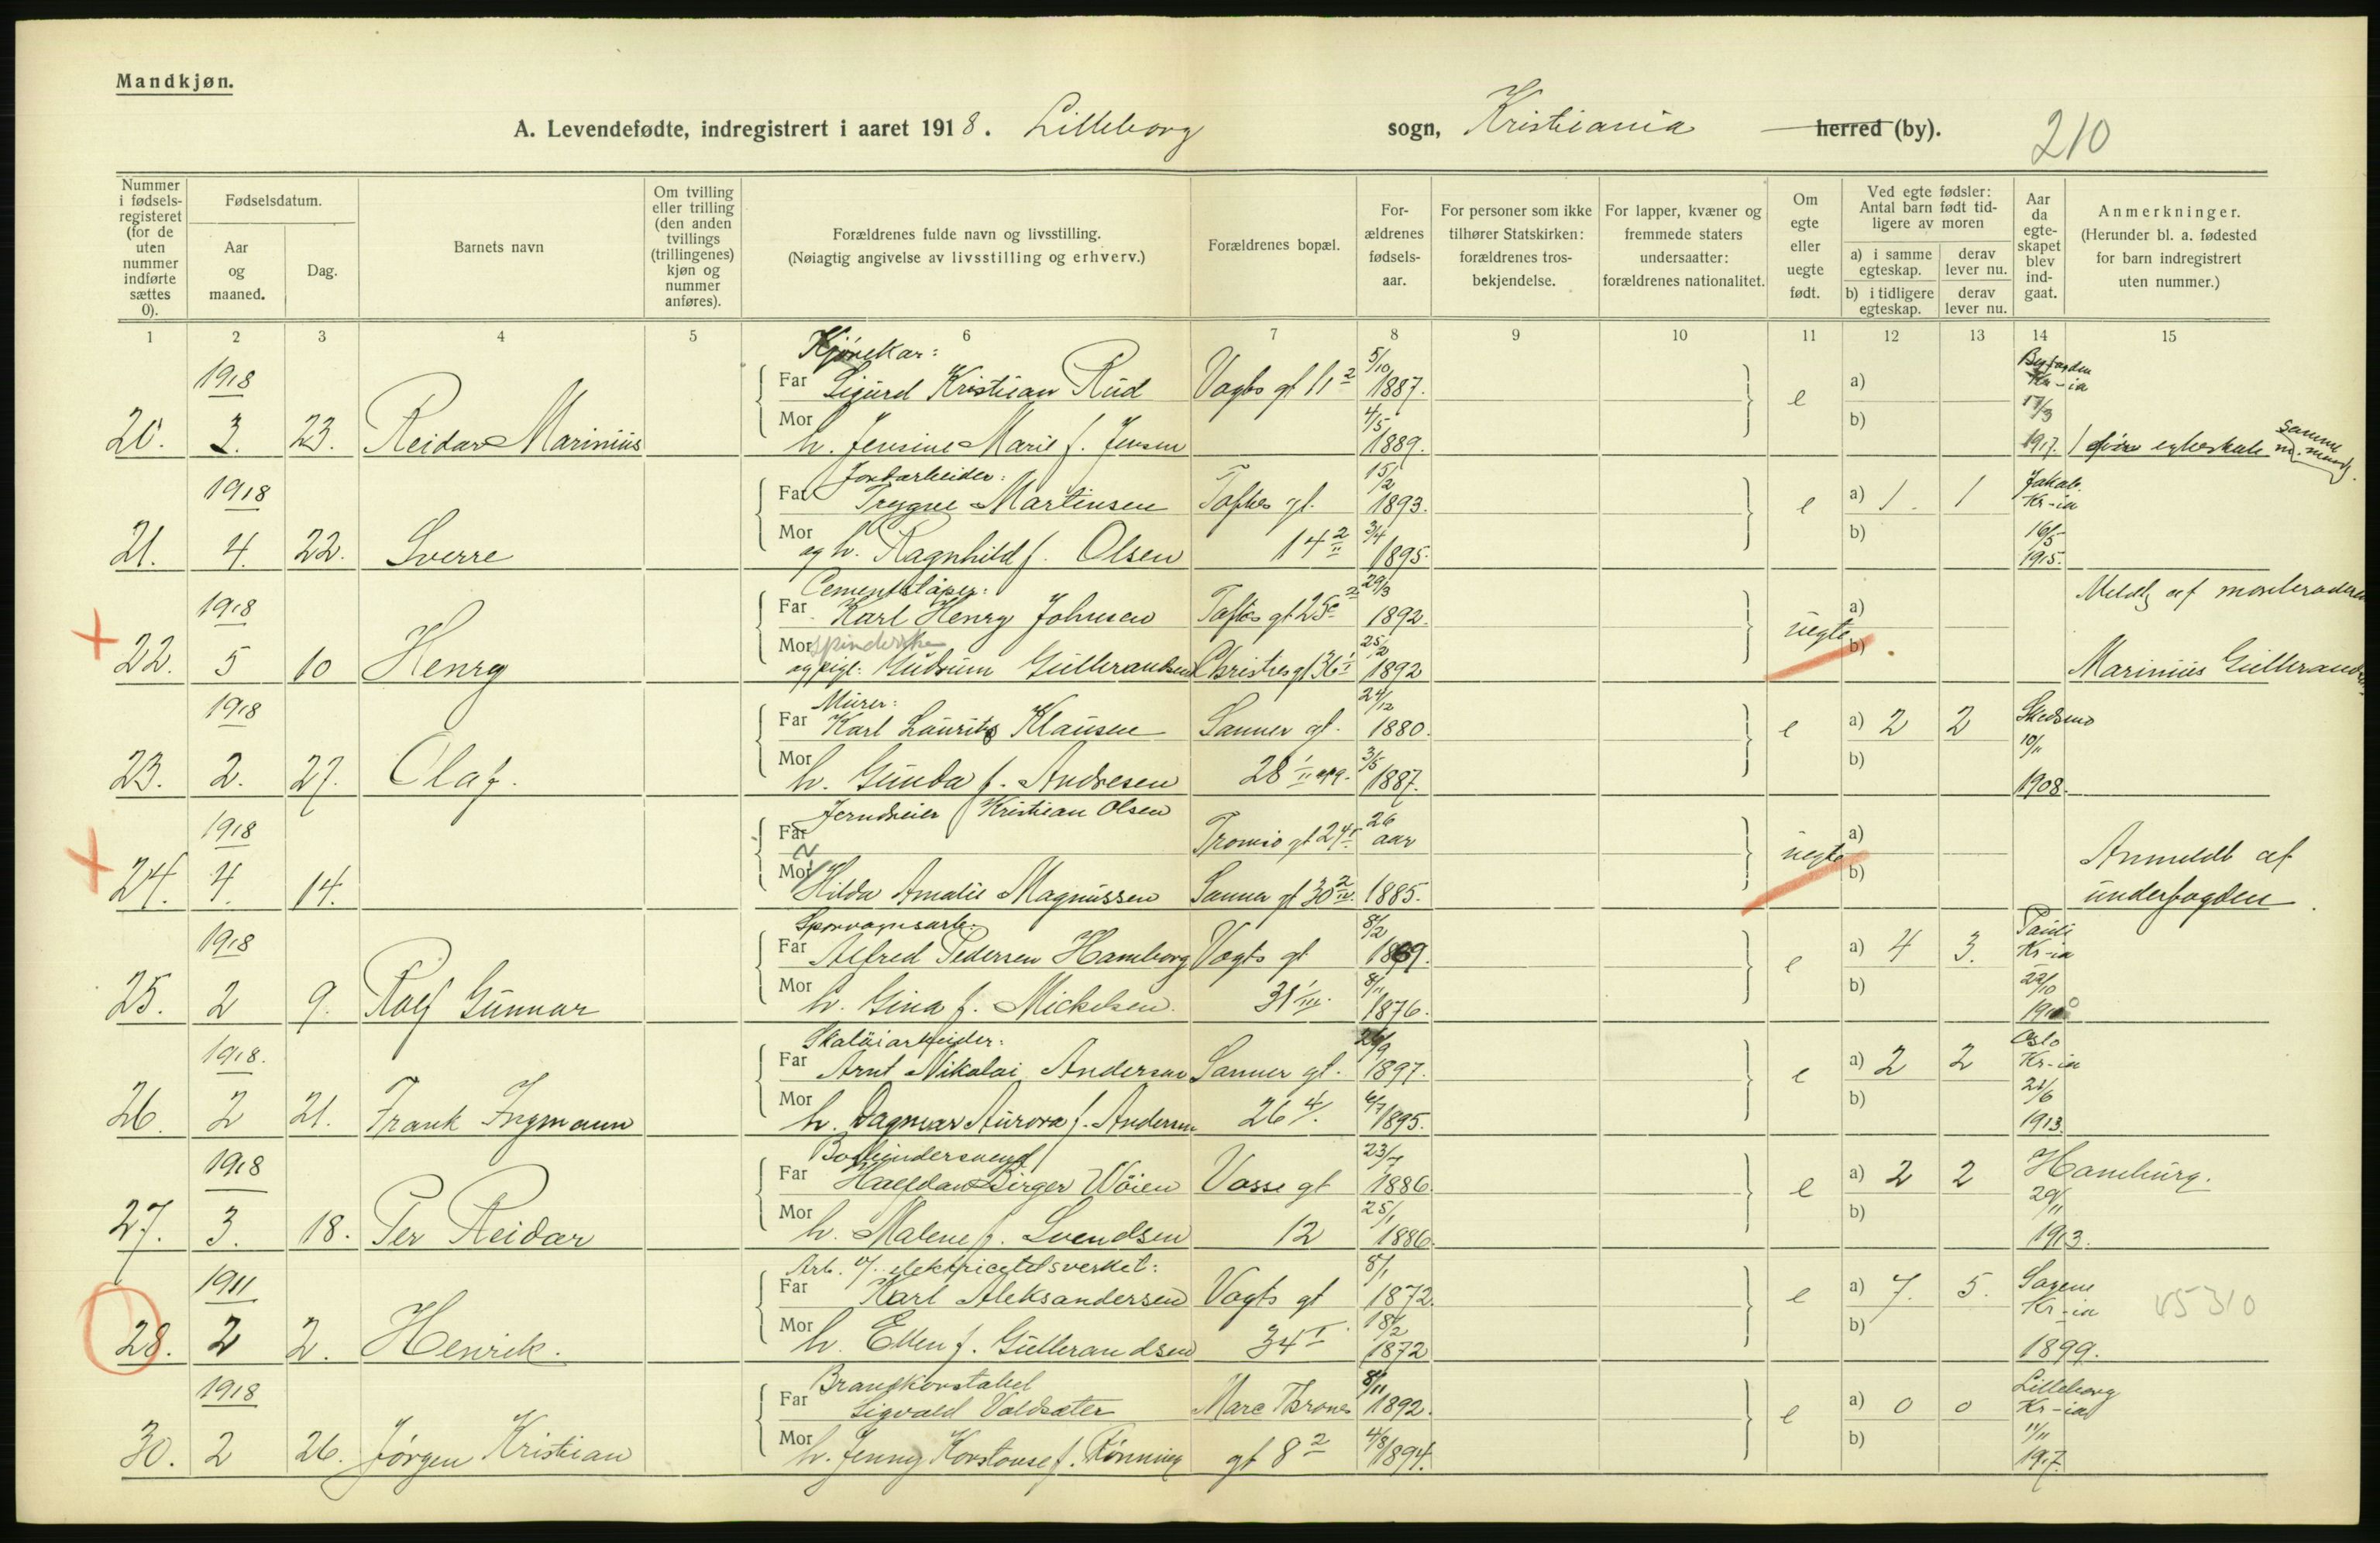 Mandkjøn.
A. Levendefødte, indregistrert i aaret 1918. Lilleborg sogn, Kristiania herred (by).
210
Nummer i fødsels-registeret (for de uten nummer indførte sættes 0).
Fødselsdatum.
Aar og maaned.
Dag.
Barnets navn
Om tvilling eller trilling (den anden tvillings (trillingenes) kjøn og nummer anføres).
Forældrenes fulde navn og livsstilling.
(Nøiagtig angivelse av livsstilling og erhverv.)
Forældrenes bopæl.
For-ældrenes fødsels-aar.
For personer som ikke tilhører Statskirken: forældrenes tros-bekjendelse.
For lapper, kvæner og fremmede staters undersaatter: forældrenes nationalitet.
Om egte eller uegte født.
Ved egte fødsler: Antal barn født tid-ligere av moren
a) i samme egteskap.
derav lever nu.
b) i tidligere egteskap.
derav lever nu.
Aar da egte-skapet blev ind-gaat.
Anmerkninger.
(Herunder bl. a. fødested for barn indregistrert uten nummer.)
1 2 3 4 5 6 7 8 9 10 11 12 13 14 15
Kjørekar:
1918 Far Sigurd Kristian Rud Vogts gt 11 2 5/10 1887. e a) Kr-ia 17/3
20. 3. 23. Reidar Marinius Mor h. Jensine Marie f. Jensen 4/5 1889. b) 1917. samme
Jordarbeider:
1918 Far Trygve Martinsen Toftes gt. 15/2 1893. e a) 1. 1 Jakob. Kr-ia
21. 4. 22. Sverre Mor og h. Ragnhild f. Olsen 14 2/II 3/4 1895. b) 16/5 1915.
Cementstøper:
1918 Far Karl Henry Johnsen Toftes gt 25 29/3 1892. uegte a) Meldt af
22. 5 10 Henry Mor Spinderske og pige: Gudrum Gulbrandsen Christies gt 36 1/I 25/2 1892 b) Marinius
Murer:
1918 Far Karl Lauritz Klausen Sanner gt. 24/12 1880. e a) 2 2 Skedsmo 10/11
23. 2. 27. Olaf. Mor h. Gunda f. Andresen 28 1/II opg. 3/5 1887. b) 1908.
Jerndreier Kristian Olsen
1918 Far Tromsø gt 24 I 26 aar uegte a) Anmeldt af
24. 4. 14. Mor Hilda Amalie Magnussen Sanner gt 30 2/IV. 1885. b) underfogden
Sporvognsarb.
1918 Far Alfred Pedersen Hamborg Vogts gt 8/2 1869. e a) 4 3. Pauli Kr-ia
25. 2 9. Rolf Gunnar Mor h. Gina f. Mickelsen. 31 1/III. 8/11 1876. b) 22/10
1918. Far Arnt Nikolai Andersen Sanner gt. 1897. e a) 2 2 Oslo Kr-ia
26. 2 21. Frank Ingmann Mor h. Dagmar Aurora f. Andersen 26 4/I. 6/7 1895. b) 21/6 1913.
1918 Far Halfdan Birger Wøien Vosse gt 1886. e a) 2 2 Hamburg.
27. 3. 18. Per Reidar Mor h. Malene f. Svendsen 12 25/1 1886. b) 29/11 1913.
Arb. v/. elektricitetsverket:
1911 Far Karl Aleksandersen Vogts gt 8/1 1872. e a) 7. 5. Sagene Kr-ia 45310
28. 2 2. Henrik. Mor h. Ellen f. Gulbrandsen 34 I 18/2 1872 b) 1899.
Brandkonstabel
1918 Far Sigvald Voldsæter Marc Thranes 8/11 1892. e a) 0 0 Lilleborg Kr-ia
30. 2 26. Jørgen Kristian Mor h. Jenny Konstanse f. Rønning gt 8 2 4/8 1894. b) 11/11 1917.